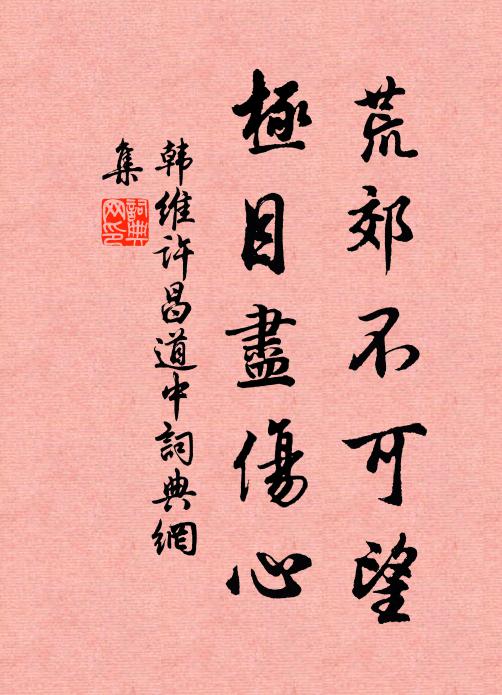 荒郊不可望
極目盡傷心
韩维许昌道中詞典網
集
詞典
网印